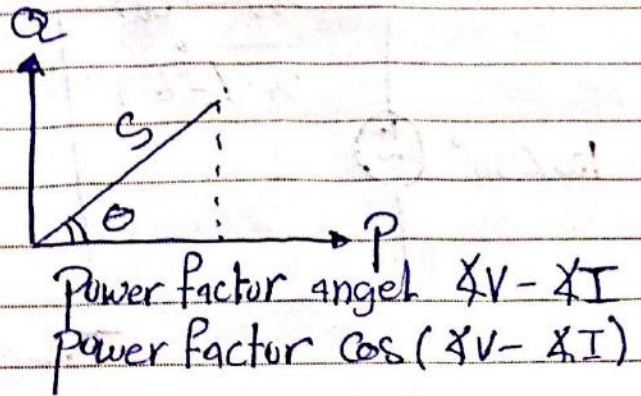 Q
S
θ
P
Power factor angel ∡V - ∡I
Power factor Cos(∡V - ∡I)